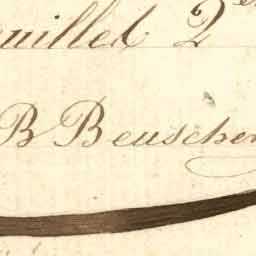 uillet 2
B Beuscher